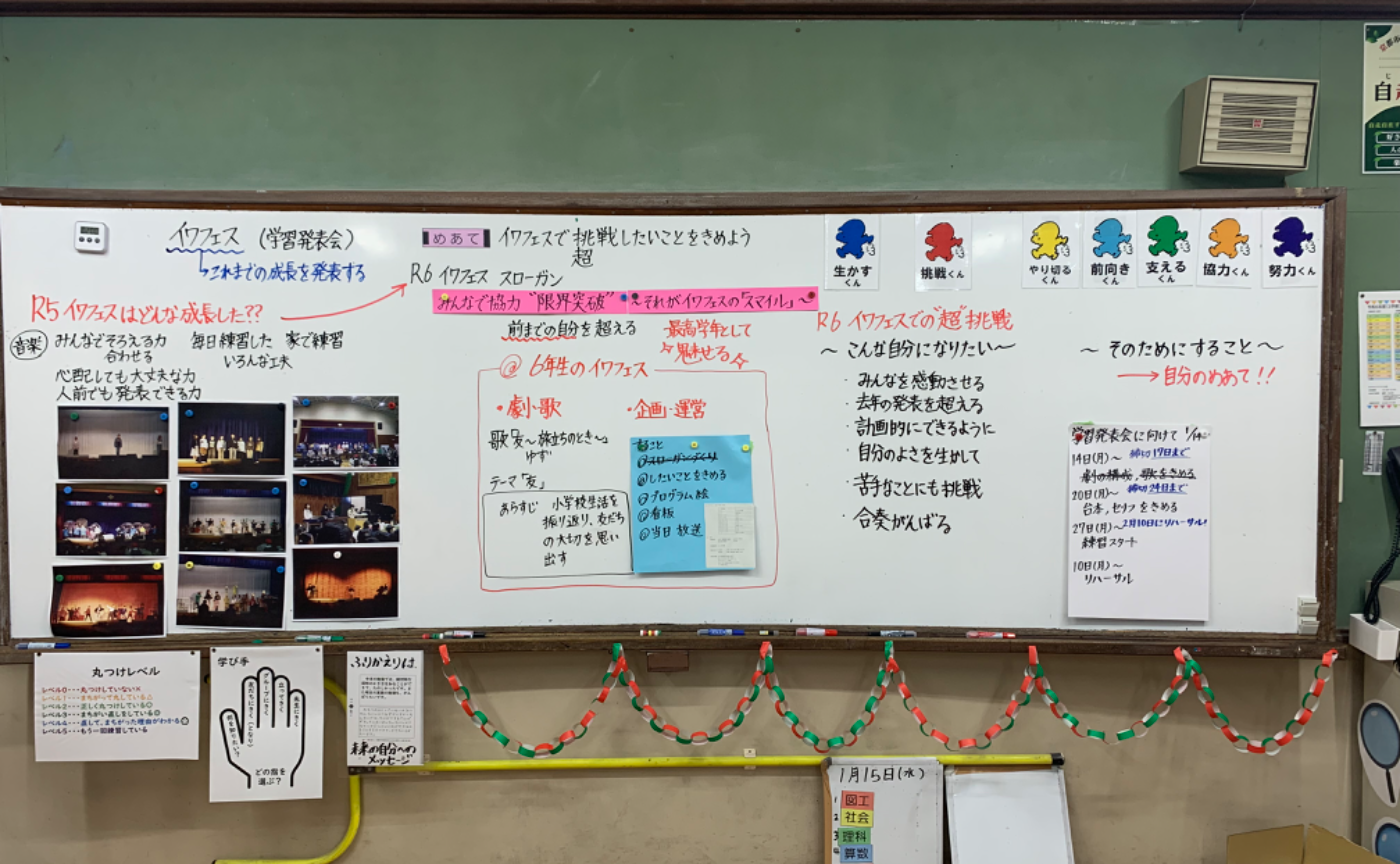 イワフェス (学習発表会)
↳これまでの成長を発表する
R5 イワフェスはどんな成長した??
音楽
みんなでそろえる力
合わせる
毎日練習した 家で練習
いろんな工夫
心配しても大丈夫な力
人前でも発表できる力
めあて イワフェスで挑戦したいことをきめよう
超
R6 イワフェス スローガン
みんなで協力 "限界突破" ~それがイワフェスの「スマイル」~
前までの自分を超える
最高学年として
魅せる
@ 6年生のイワフェス
・劇・歌
歌 友~旅立ちのとき~
ゆず
テーマ「友」
あらすじ 小学校生活を
振り返り、友だち
の大切を思い
出す
・企画・運営
すること
@スローガンづくり
@したいことをきめる
@プログラム絵
@看板
@当日 放送
生かす
くん
挑戦くん
やり切る
くん
前向き
くん
支える
くん
協力くん
努力くん
R6 イワフェスでの"超"挑戦
~こんな自分になりたい~
・みんなを感動させる
・去年の発表を超える
・計画的にできるように
・自分のよさを生かして
・苦手なことにも挑戦
・合奏がんばる
~そのためにすること~
→自分のめあて!!
学習発表会に向けて 1/14~
14日(月)~ 締切17日まで
劇の構成、歌をきめる
20日(月)~ 締切24日まで
台本、セリフをきめる
27日(月)~2月10日にリハーサル!
練習スタート
10日(月)~
リハーサル
丸つけレベル
レベル0・・・丸つけしていない×
レベル1・・・まちがって丸している△
レベル2・・・正しく丸つけしている○
レベル3・・・まちがい直しをしている◎
レベル4・・・直して、まちがった理由がわかる
レベル5・・・もう一回練習している
学び手
何を知りたい?
友だちにきく(となり)
グループにきく
立ってきく
先生にきく
どの指を
選ぶ?
ふりかえりは、
未来の自分への
メッセージ
1月15日(水)
1 図工
2 社会
3 理科
4 算数
自